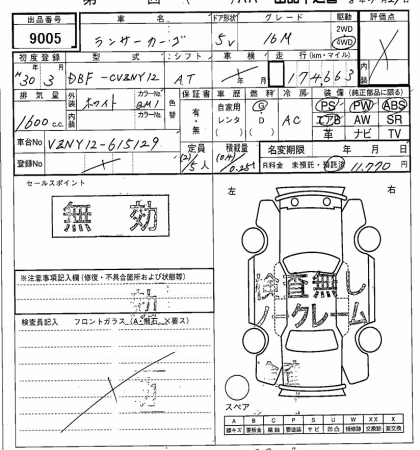 出品番号 車名 ドア形状 グレード 駆動 評価点
9005 ランサーカーゴ 5V 16M 2WD 4WD
初度登録 型式 シフト 車検 走行(km・マイル)
H30年3月 DBF-CVZNY12 AT 年 月 174,663
排気量 外装 ホワイト カラーNo. QM1 色替 保証書 車歴 燃料 冷房 装備(純正部品に限る)
1600 c.c. 内装 カラーNo. 有・無 自家用 レンタ G D AC PS PW ABS
エアB AW SR
革 ナビ TV
車台No VZNY12-615129 定員 積載量 名変期限 年 月 日
登録No 5人 R料金 未預託・預託済 11,770円
セールスポイント 左 右
無効
※注意事項記入欄(修復・不具合箇所および状態等)
検査員記入 フロントガラス(A・飛石 X要ス)
検査無し
ノークレーム
スペア
A B C P S U W X XX
線キズ 要板金 腐蝕 要塗装 サビ 凹凸 補修跡 交換跡 要交換